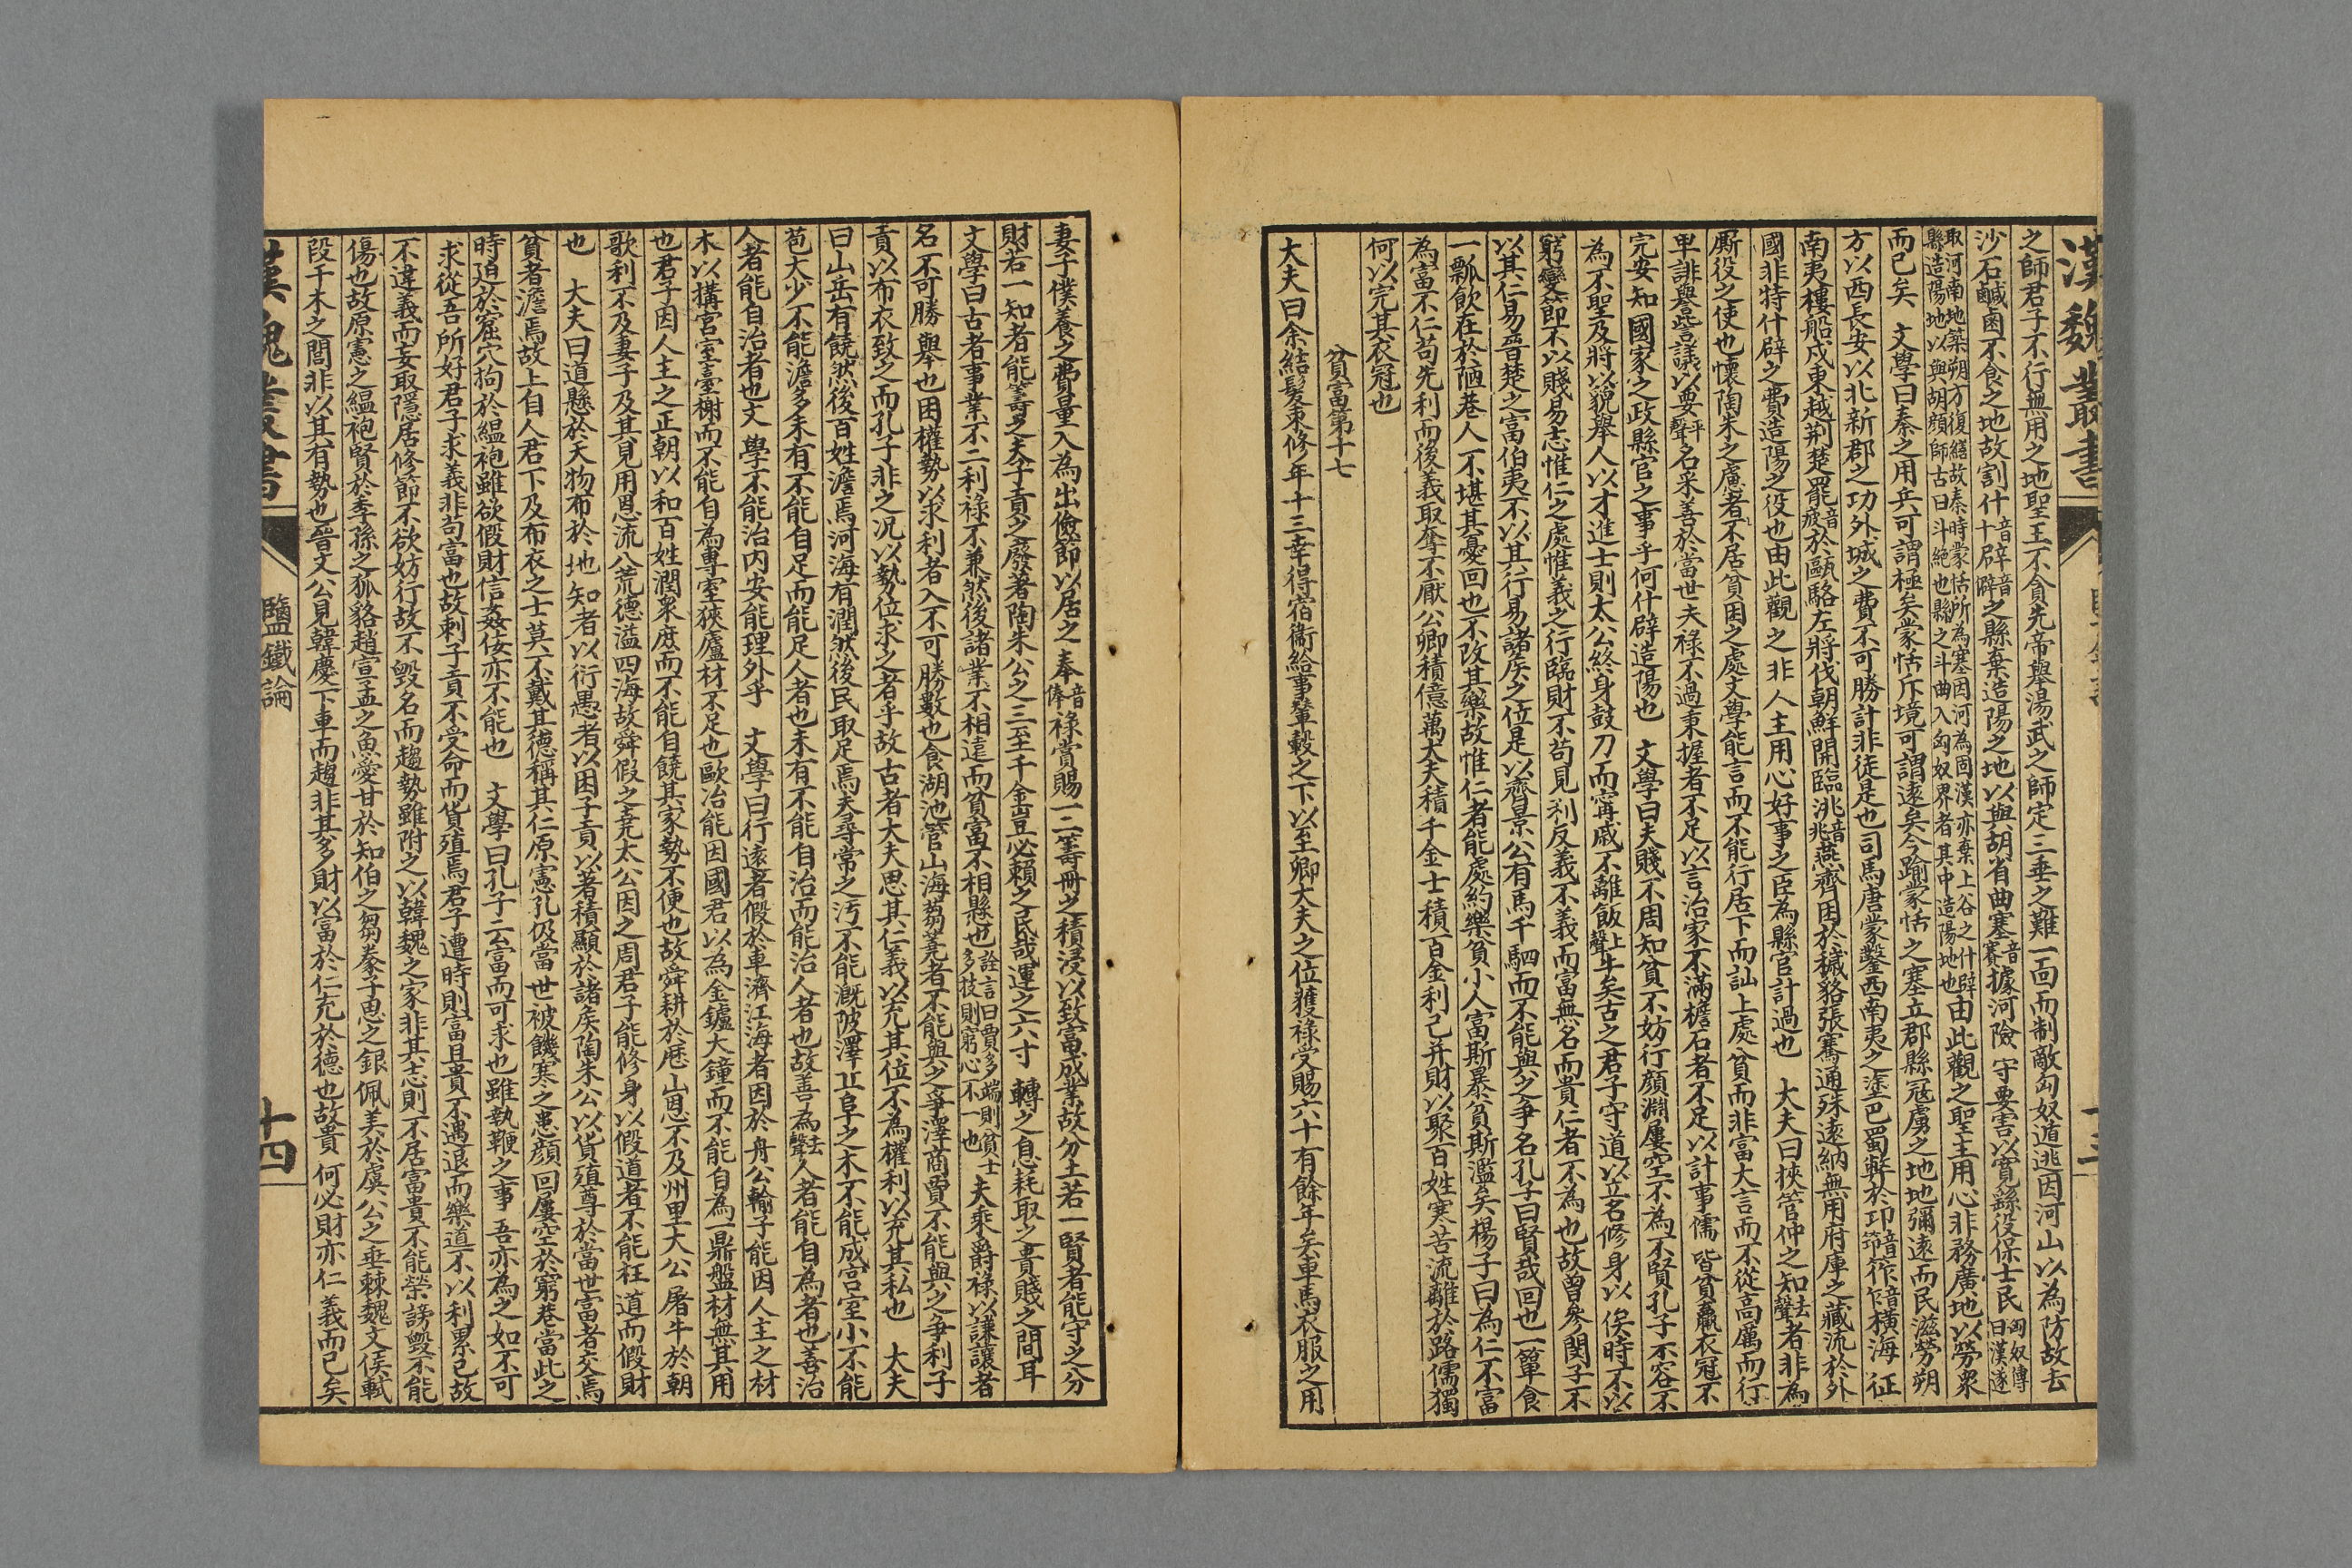 漢魏叢書
之師君子不行無用之地聖王不貪先帝舉湯武之師定三垂之難一面而制敵匈奴遁逃因河山以為防故去
沙石鹹鹵不食之地故割什音十辟音辟之縣棄造陽之地以與胡省曲塞音賽據河險守要害以寬繇役保士民匈奴傳曰漢遂
取河南地築朔方復繕故秦時蒙恬所為塞因河為固漢亦棄上谷之什辟縣造陽地以與胡顔師古曰斗絕也縣之斗曲入匈奴界者其中造陽地也由此觀之聖主用心非務廣地以勞衆
而已矣 文學曰秦之用兵可謂極矣蒙恬斥境可謂遠矣今踰蒙恬之塞立郡縣寇虜之地地彌遠而民滋勞朔
方以西長安以北新郡之功外城之費不可勝計非徒是也司馬唐蒙鑿西南夷之塗巴蜀弊於卭筰橫海征
南夷樓船戍東越荆楚罷音疲於甌駱左將伐朝鮮開臨洮音兆燕齊困於穢貉張騫通殊遠納無用府庫之藏流於外
國非特什辟之費造陽之役也由此觀之非人主用心好事之臣為縣官計過也 大夫曰挾管仲之知去聲者非為
厮役之使也懷陶朱之慮者不居貧困之處文學能言而不能行居下而訕上處貧而非富大言而不從高厲而行
卑誹譽訾議以要平聲名采善於當世夫祿不過秉握者不足以言治家不滿檐石者不足以計事儒皆貧羸衣冠不
完安知國家之政縣官之事乎何什辟造陽也 文學曰夫賤不周知貧不妨行顔淵屢空不為不賢孔子不容不
為不聖及將以貌舉人以才進士則太公終身鼓刀而甯戚不離飯上聲牛矣古之君子守道以立名修身以俟時不以
窮變節不以賤易志惟仁之處惟義之行臨財不苟見利反義不義而富無名而貴仁者不為也故曾參閔子不
以其仁易晉楚之富伯夷不以其行易諸侯之位是以齊景公有馬千駟而不能與之爭名孔子曰賢哉回也一簞食
一瓢飲在於陋巷人不堪其憂回也不改其樂故惟仁者能處約樂貧小人富斯暴貧斯濫矣楊子曰為仁不富
為富不仁苟先利而後義取奪不厭公卿積億萬大夫積千金士積百金利己并財以聚百姓寒苦流離於路儒獨
何以完其衣冠也
貧富第十七
大夫曰余結髮束修年十三幸得宿衞給事輦轂之下以至卿大夫之位獲祿受賜六十有餘年矣車馬衣服之用
妻子僕養之費量入為出儉節以居之奉音俸祿賞賜一二籌冊之積浸以致富成業故分土若一賢者能守之分
財若一知者能籌之夫子貢之廢著陶朱公之三至千金豈必賴之民哉運之六寸轉之息耗取之貴賤之間耳
文學曰古者事業不二利祿不兼然後諸業不相遠而貧富不相懸也詮言曰賈多端則貧士多技則窮心不一也夫乘爵祿以謙讓者
名不可勝舉也因權勢以求利者入不可勝數也食湖池管山海芻蕘者不能與之爭澤商賈不能與之爭利子
貢以布衣致之而孔子非之况以勢位求之者乎故古者大夫思其仁義以充其位不為權利以充其私也 大夫
曰山岳有饒然後百姓澹焉河海有潤然後民取足焉夫尋常之汚不能溉陂澤丘阜之木不能成宫室小不能
苞大少不能澹多未有不能自足而能足人者也未有不能自治而能治人者也故善為去聲人者能自為者也善治
人者能自治者也文學不能治内安能理外乎 文學曰行遠者假於車濟江海者因於舟公輸子能因人主之材
木以搆宫室臺榭而不能自為專室狹廬材不足也歐冶能因國君以為金鑪大鐘而不能自為一鼎盤材無其用
也君子因人主之正朝以和百姓潤衆庶而不能自饒其家勢不便也故舜耕於歷山恩不及州里太公屠牛於朝
歌利不及妻子及其見用恩流八荒德溢四海故舜假之堯太公因之周君子能修身以假道者不能枉道而假財
也 大夫曰道懸於天物布於地知者以衍愚者以困子貢以著積顯於諸侯陶朱公以貨殖尊於當世富者交焉
貧者澹焉故上自人君下及布衣之士莫不戴其德稱其仁原憲孔伋當世被饑寒之患顔回屢空於窮巷當此之
時迫於窟穴拘於緼袍雖欲假財信姦佞亦不能也 文學曰孔子云富而可求也雖執鞭之事吾亦為之如不可
求從吾所好君子求義非苟富也故刺子貢不受命而貨殖焉君子遭時則富且貴不遇退而樂道不以利累己故
不違義而妄取隱居修節不欲妨行故不毀名而趨勢雖附之以韓魏之家非其志則不居富貴不能榮謗毀不能
傷也故原憲之緼袍賢於季孫之狐貉趙宣孟之魚飧甘於知伯之芻豢子思之銀佩美於虞公之垂棘魏文侯軾
段干木之閭非以其有勢也晉文公見韓慶下車而趨非其多財以富於仁充於德也故貴何必財亦仁義而已矣
漢魏叢書
鹽鐵論
十四